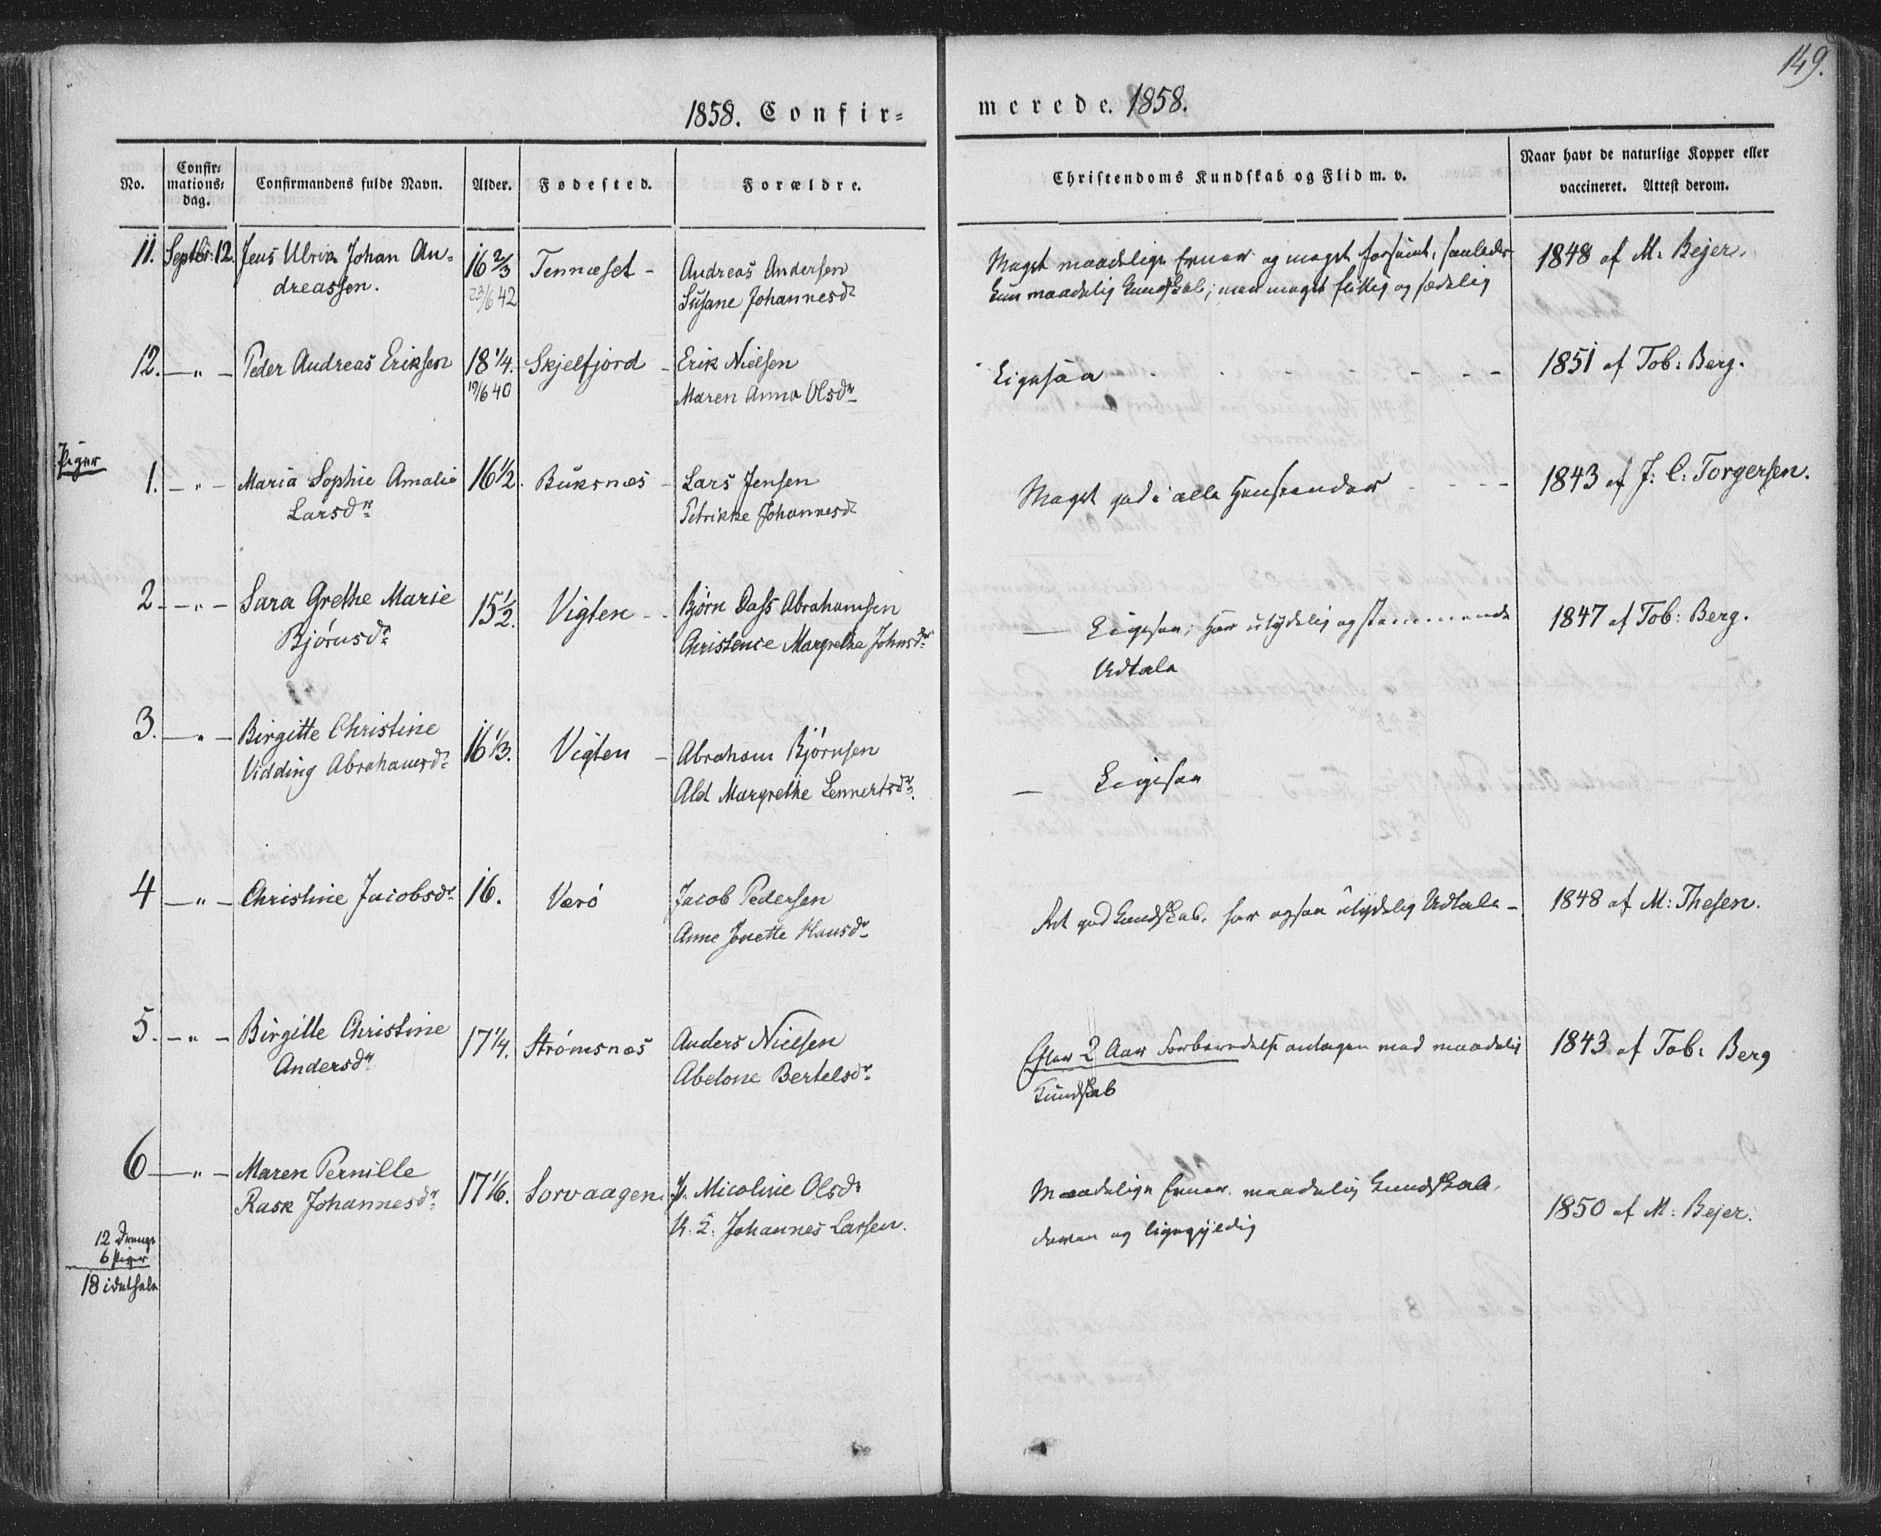 149.
1858. Confir=
merede. 1858.
No.
Confir=
mations=
dag.
Confirmandens fulde Navn.
Alder.
Fødested.
Forældre.
Christendoms Kundskab og Flid m. v.
Naar havt de naturlige Kopper eller
vaccineret. Attest derom.
11. Septbr: 12. Jens Ulrik Johan An-
dreassen.
16 2/3
23/6 42
Tennæset -
Andreas Andersen
Susane Johannesdr
Meget maadelige Evner og meget forsømt, saaledes
kun maadelig Kundskab; men meget flittig og sædelig
1848 af M: Bejer.
12. — " — Peder Andreas Eriksen
18 1/4.
19/6 40
Skjelfjord -
Erik Nielsen
Maren Anna Olsdr
Ligesaa - - - - - -
1851 af Tob: Berg.
Piger
1. — " — Maria Sophie Amalie
Larsdr
16 1/2.
Buksnæs -
Lars Jensen
Petrikke Johannesdr
Meget god i alle Henseender - - - -
1843 af J: C: Torgersen.
2 — " — Sara Grethe Marie
Bjørnsdr
15 1/2.
Vigten - -
Bjørn Dass Abrahamsen
Christence Margrethe Johnsdr
— Ligesaa; har utydelig og stammende
Udtale
1847 af Tob: Berg.
3. — " — Birgitte Christine
Vidding Abrahamsdr
16 1/3.
Vigten -
Abraham Bjørnsen
Ald Margrethe Lennertsdr.
— Ligesaa
4 — " — Christine Jacobsdr
16.
Værö
Jacob Pedersen
Anne Jonette Hansdr
Ret god Kundskab, har ogsaa utydelig Udtale -
1848 af M: Thesen.
5. — " — Birgitte Christine
Andersdr
17 1/4.
Strömsnæs
Anders Nielsen
Abelone Bertelsdr
Efter 2 Aars Forberedelse antagen med maadelig
Kundskab
1843 af Tob: Berg
6 — " — Maren Pernille
Rask Johannesdr
17 1/6.
Sorvaagen.
P. Nicoline Olsdr
U. Ǝ. Johannes Larsen.
Maadelige Evner, maadelig Kundskab,
doven og ligegyldig
1850 af M: Bejer.
12 Drenge
6 Piger
18 i det hele